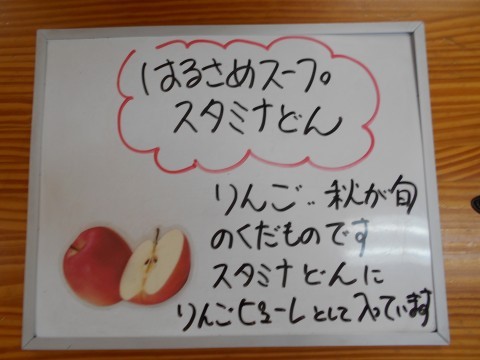 はるさめスープ。
スタミナどん
りんご‥秋が旬
のくだものです
スタミナどんに
りんごピューレとして入っています